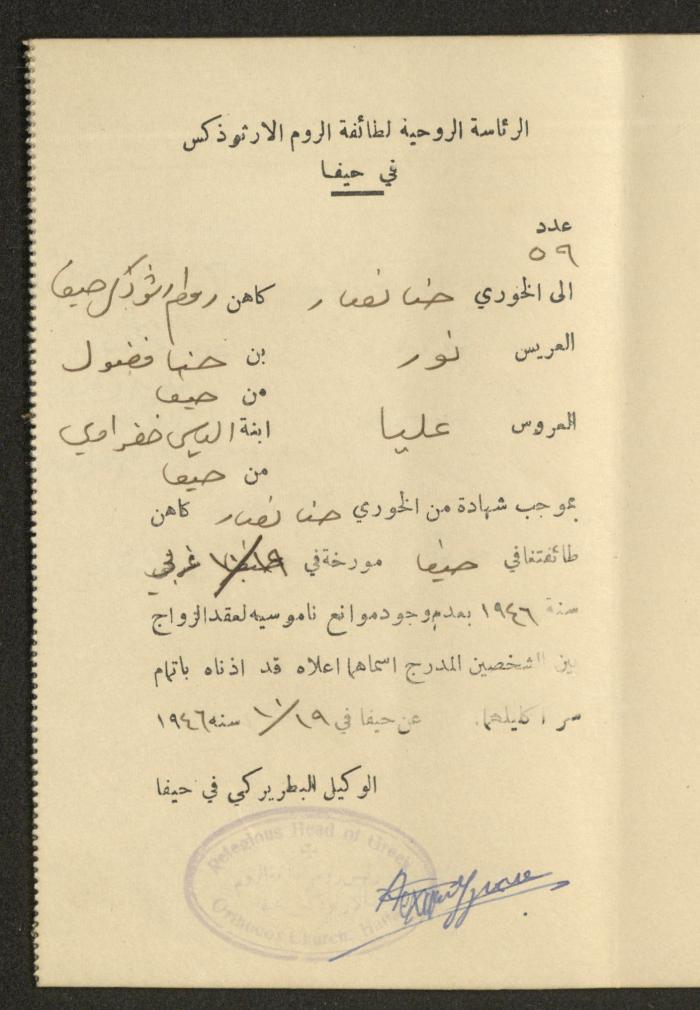 الرئاسة الروحية لطائفة الروم الارثوذكس
في حيفا
عدد
٥٩
الى الخوري حنا نصار كاهن روم ارثوذكس حيفا
العريس نور بن حنا فضول
من حيفا
العروس عليا ابنة الياس
من حيفا
بموجب شهادة من الخوري حنا نصار كاهن
طائفتنا في حيفا مورخة في ١٠/١٩ غربي
سنة ١٩٤٦ بعدم وجود موانع ناموسيه لعقد الزواج
بين الشخصين المدرج اسماهما اعلاه قد اذناه باتمام
سر اكليلهما. عن حيفا في ١٠/١٩ سنه ١٩٤٦
الوكيل البطريركي في حيفا
Relegious Head of Greek
Orthodox Church, Haifa